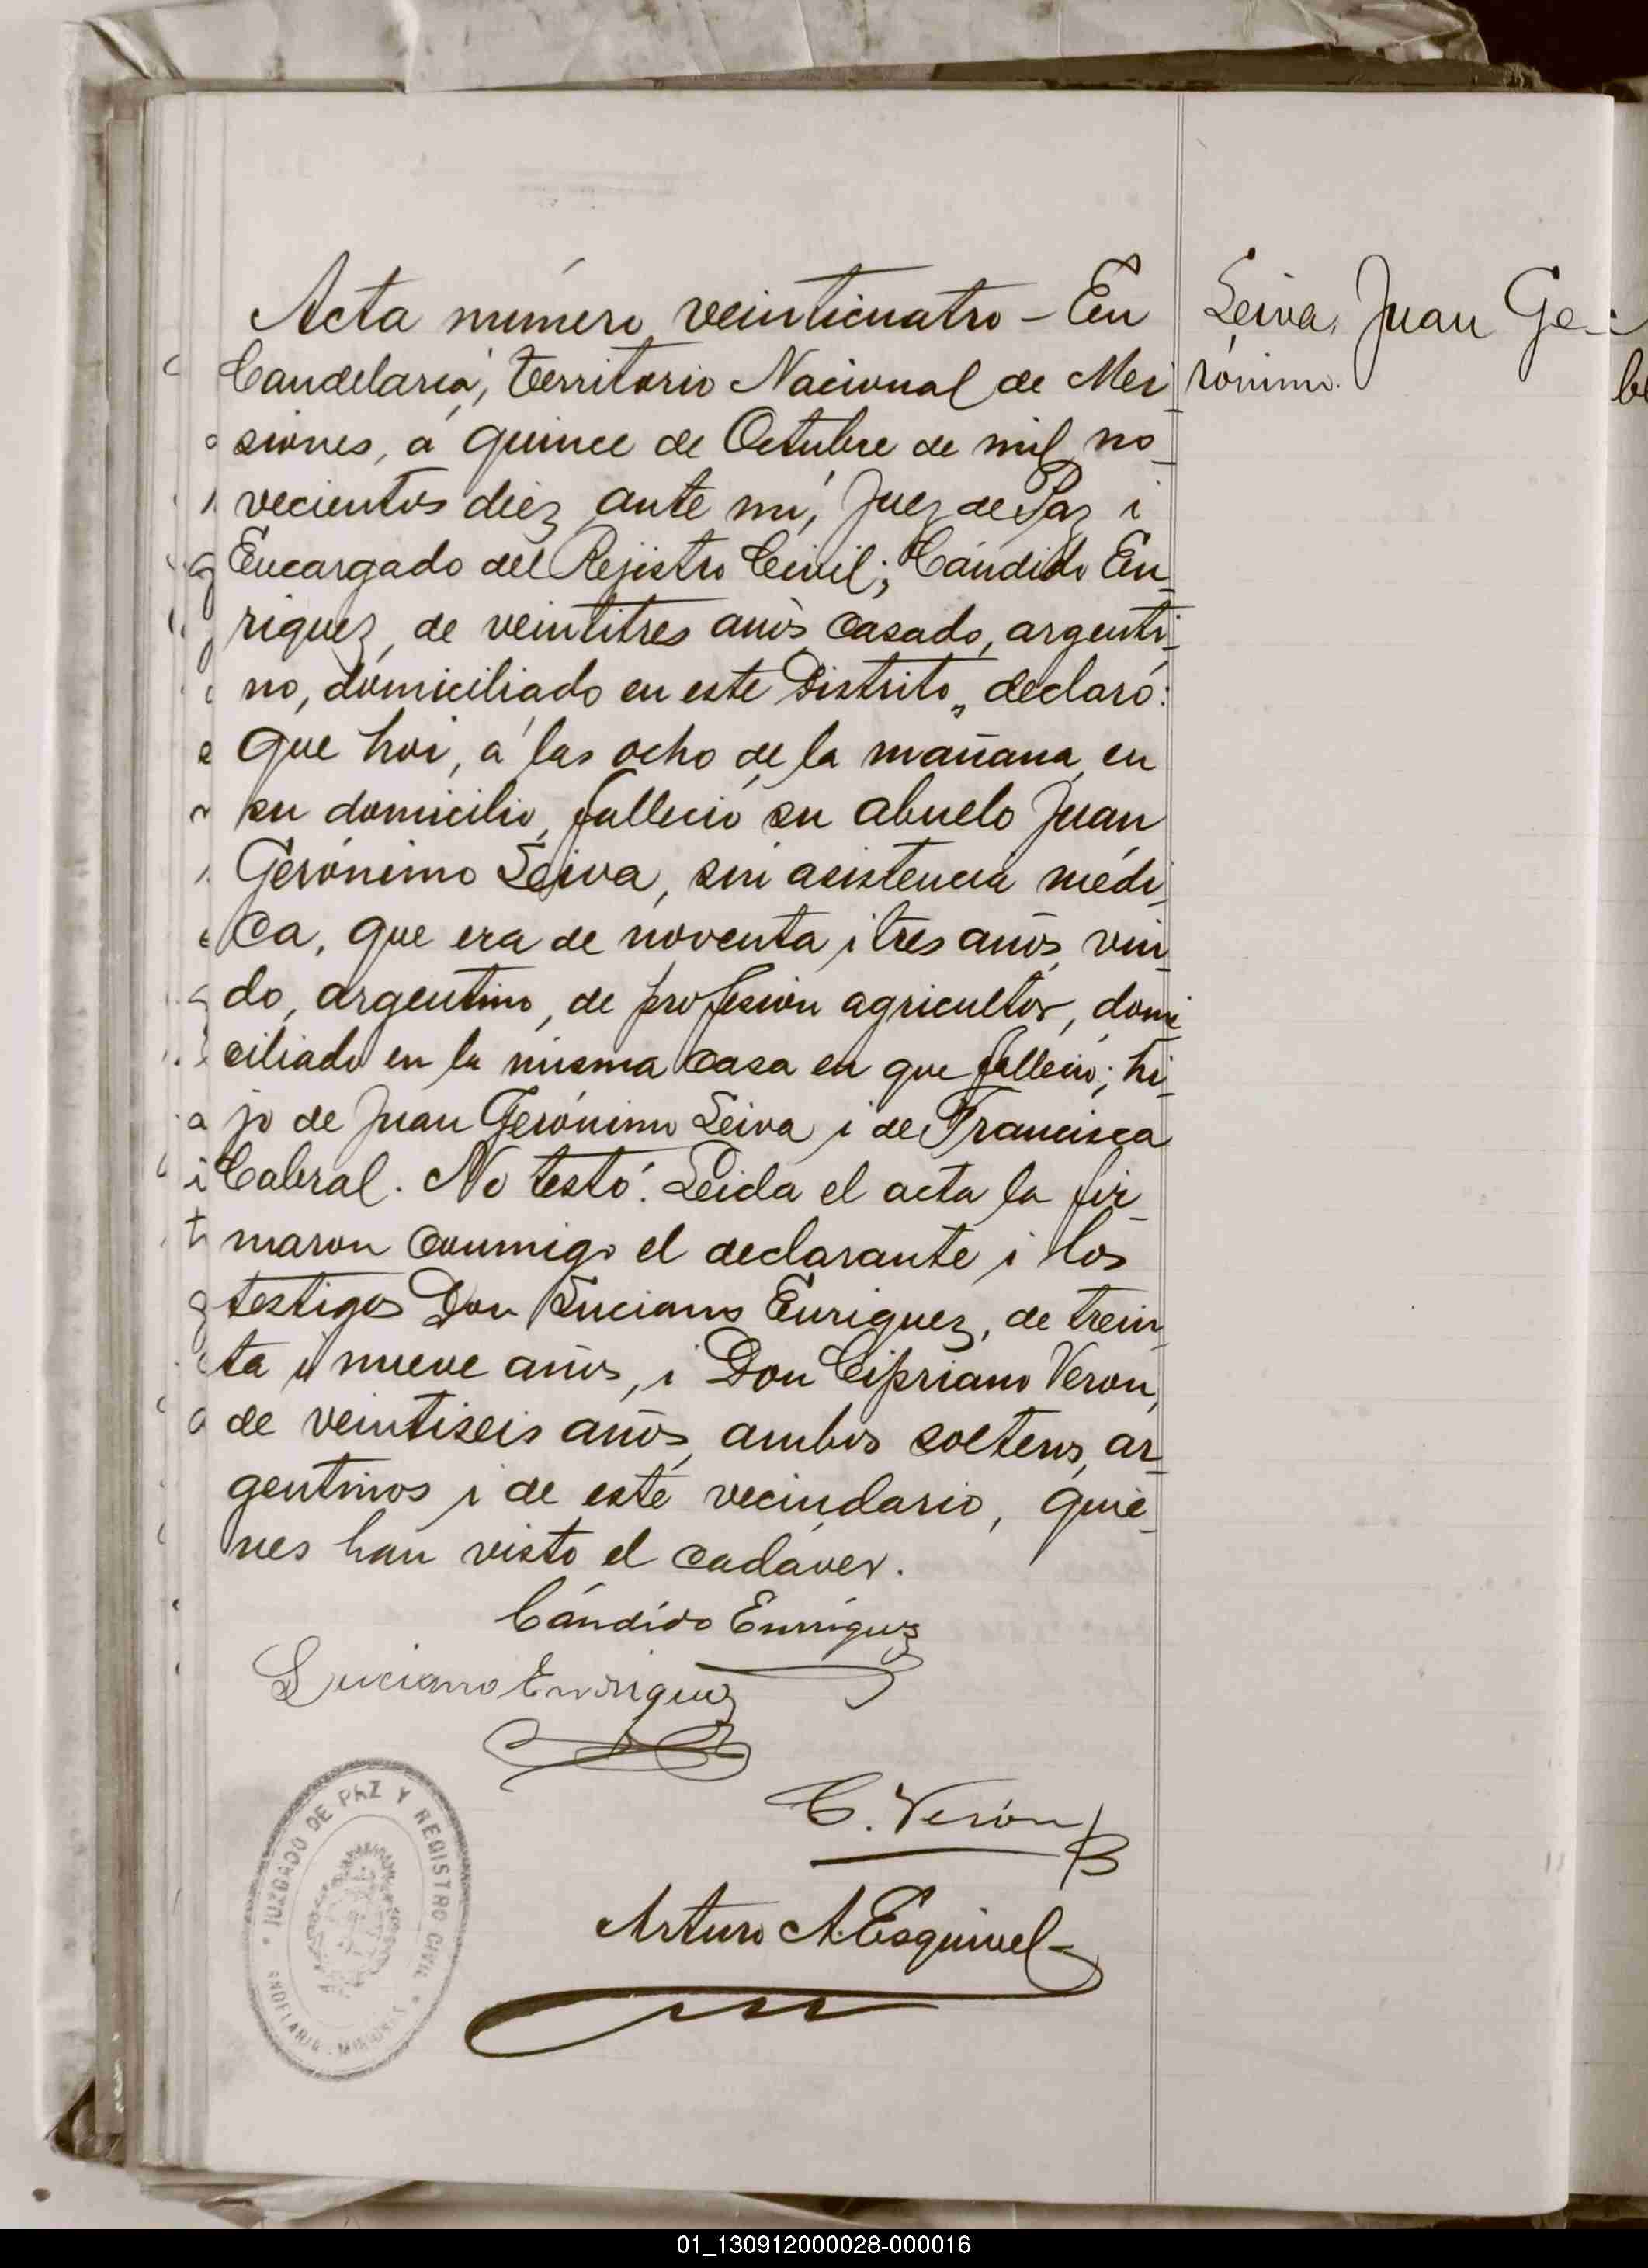 Acta número veinticuatro - En
Candelaria, Territorio Nacional de Mi-
siones, á quince de Octubre de mil no-
vecientos diez, ante mí, Juez de Paz i
Encargado del Rejistro Civil; Cándido En-
riquez, de veintitres años, casado, argenti-
no, domiciliado en este Distrito, declaró:
Que hoi, á las ocho de la mañana, en
su domicilio, falleció su abuelo Juan
Gerónimo Leiva, sin asistencia médi-
ca, que era de noventa i tres años, viu-
do, argentino, de profesion agricultor, domi
ciliado en la misma casa en que falleció; hi-
jo de Juan Gerónimo Leiva i de Francisca
Cabral. No testó. Leida el acta la fir-
maron conmigo el declarante i los
testigos Don Luciano Enriquez, de trein-
ta i nueve años, i Don Cipriano Veron,
de veintiseis años, ambos solteros, ar-
gentinos i de este vecindario, quie-
nes han visto el cadáver.
Leiva, Juan Ge-
rónimo.
Cándido Enríquez
Luciano Enriquez
C. Verón
Arturo A. Esquivel
JUZGADO DE PAZ Y REGISTRO CIVIL
CANDELARIA - MISIONES
01_130912000028-000016